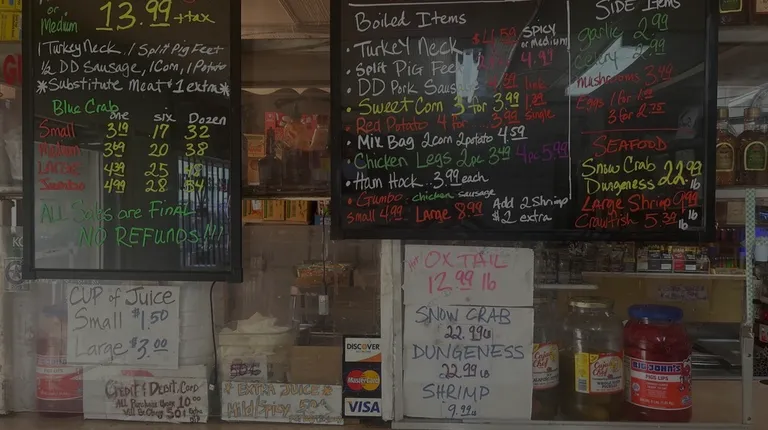 or Medium 13.99 +tax
1 Turkey Neck, 1 Split Pig Feet
1/2 DD Sausage, 1 Corn, 1 Potato
*Substitute Meat $1 extra*
Blue Crab
one six Dozen
Small 3.19 17 32
Medium 3.69 20 38
Large 4.39 25
Jumbo 4.99 28 54
ALL Sales are FINAL
NO REFUNDS!!!
Boiled Items
SPICY or Medium
• Turkey Neck
• Split Pig Feet 4.99
• DD Pork Sausage link
• Sweet Corn 3 for 3.99
• Red Potato 4 for 3.99 single
• Mix Bag 2 corn 2 potato 4.59
• Chicken Legs 2pc 3.49 4pc 5.99
• Ham Hock...3.99 each
• Gumbo chicken, sausage
Small 4.99 Large 8.99 Add 2 Shrimp $2 extra
SIDE ITEMS
garlic 2.99
celery 2.99
Mushrooms 3.49
Eggs 1 for 1.
3 for 2.75
SEAFOOD
Snow Crab 22.99 lb
Dungeness
Large Shrimp 9.99 lb
Crawfish 5.39 lb
CUP of JUICE
Small $1.50
Large $3.00
OX TAIL
12.99 lb
SNOW CRAB
22.99 LB
DUNGENESS
22.99 LB
SHRIMP
9.99 LB
CREDIT & DEBIT CARD
ALL Purchase Under 10.00
Will be Charge 50¢
EXTRA JUICE
Mild/Spicy 50¢
DISCOVER
MasterCard
VISA
BIG JOHN'S
PIGS LIPS